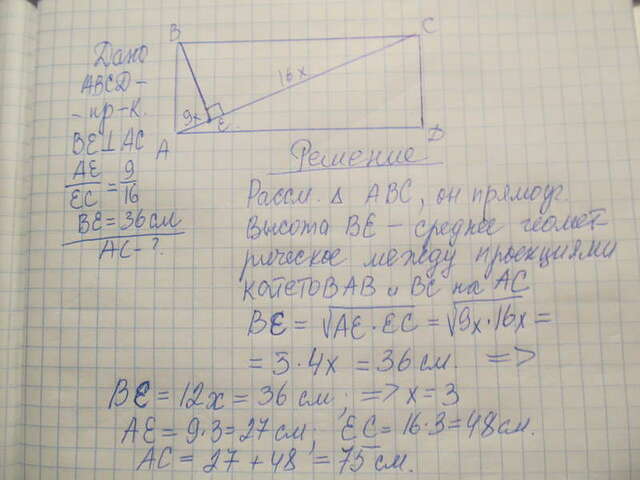 Дано
ABCD –
– пр-к.
BE ⊥ AC
AE/EC = 9/16
BE = 36 см
AC – ?
B
C
16x
9x
E
A
D
Решение
Рассм. Δ ABC, он прямоуг.
Высота BE – среднее геомет-
рическое между проекциями
катетов AB и BC на AC
BE = √AE·EC = √9x·16x =
= 3·4x = 36 см. =>
BE = 12x = 36 см; => x = 3
AE = 9·3 = 27 см; EC = 16·3 = 48 см.
AC = 27 + 48 = 75 см.